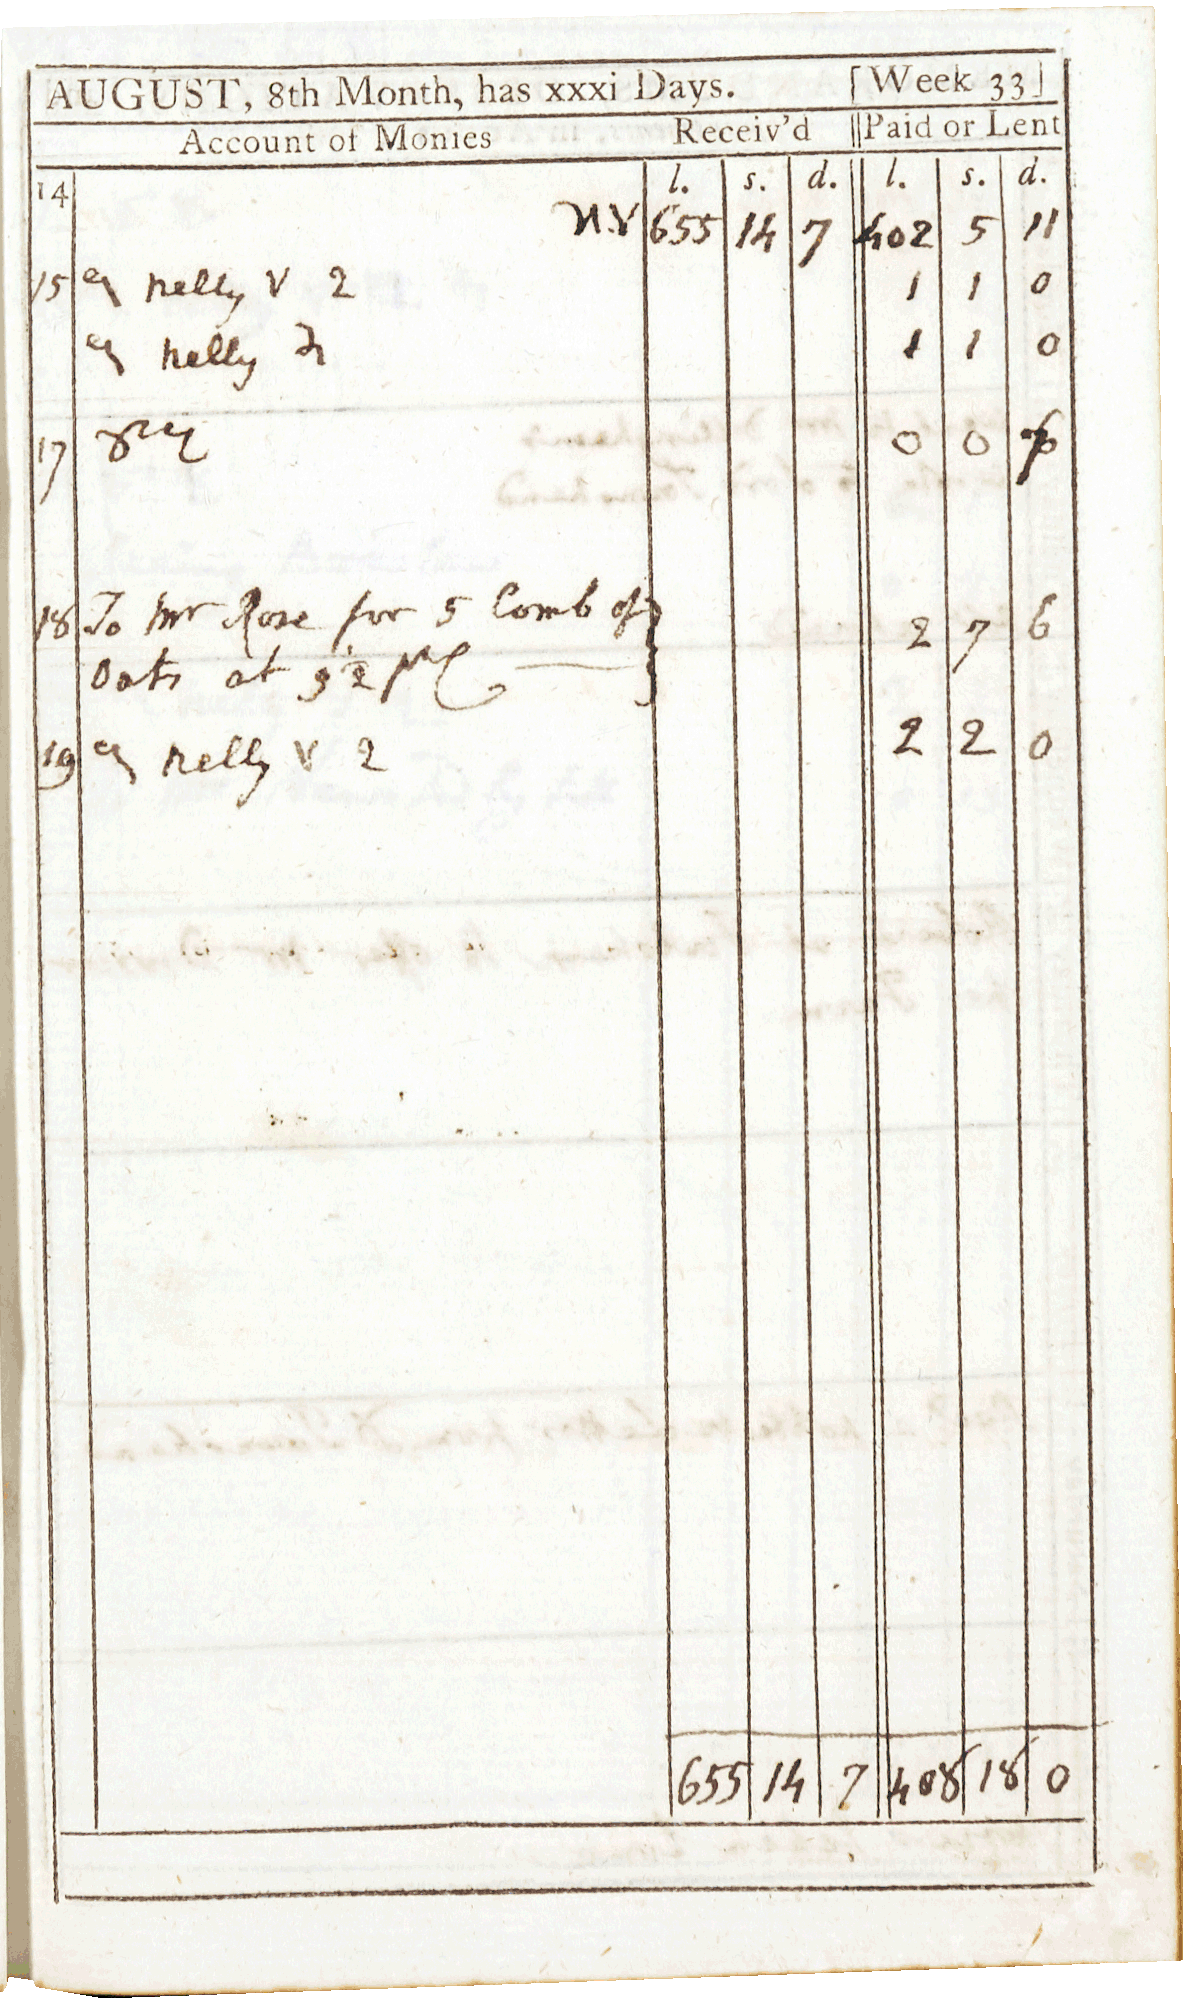 AUGUST, 8th Month, has xxxi Days. [Week 33]
Account of Monies Receiv'd Paid or Lent
14 l. s. d. l. s. d.
655 14 7 402 5 11
15 nelly V 2 1 1 0
nelly 1 1 0
17 0 0
18 To Mr Rose for 5 Comb of 2 7 6
Oats at
19 nelly V 2 2 2 0
655 14 7 408 18 0